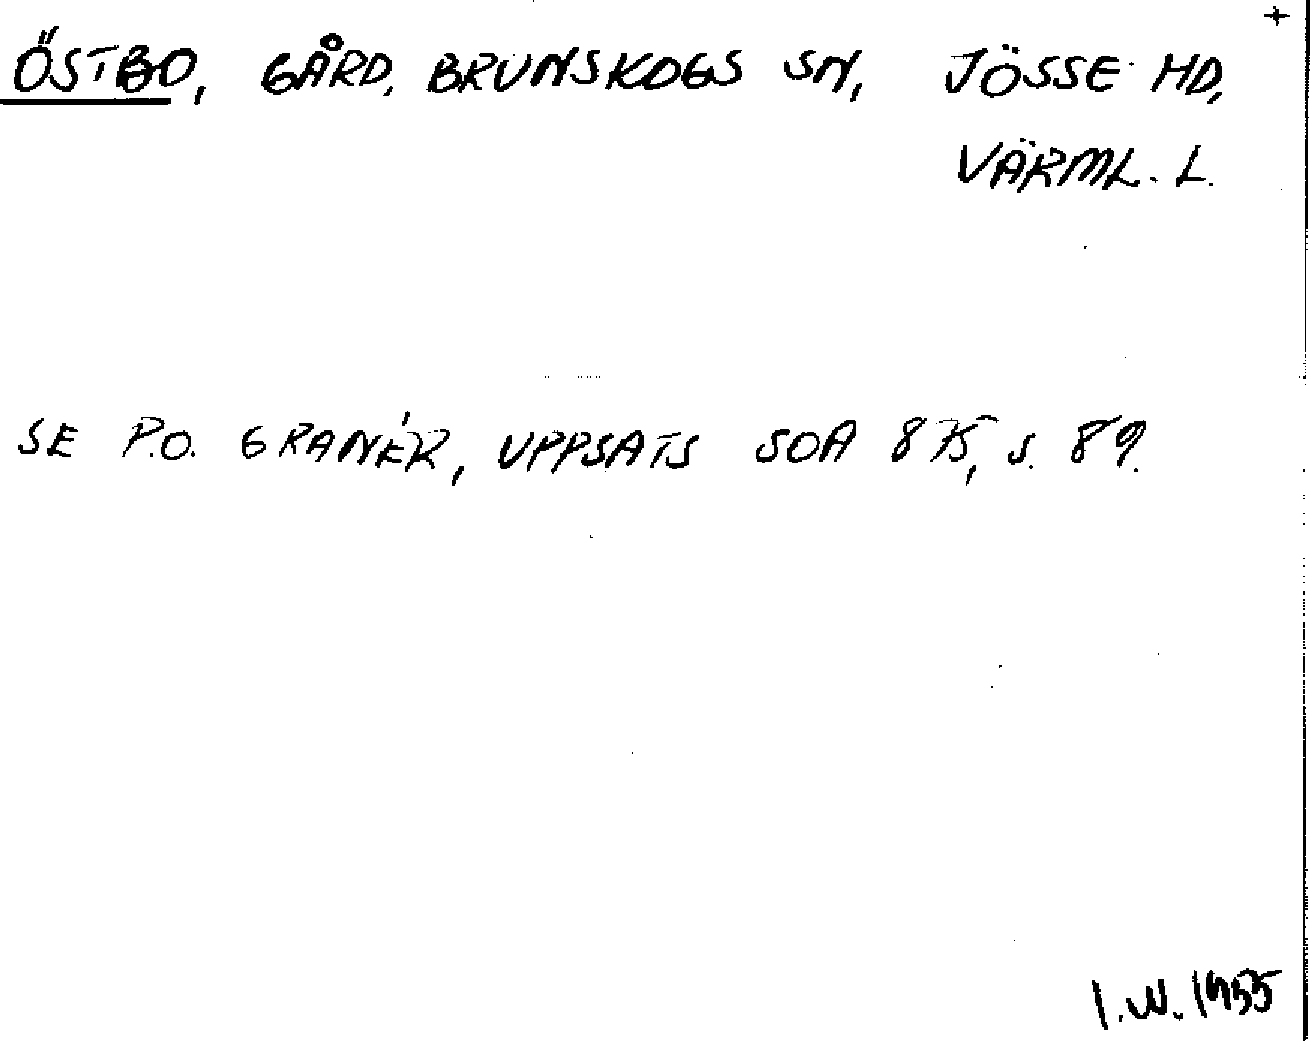 +
ÖSTBO, GÅRD, BRUNSKOGS SN, JÖSSE HD,
VÄRML. L.
SE P.O. GRANÉR, UPPSATS SOA 875, S. 89.
I.W. 1955